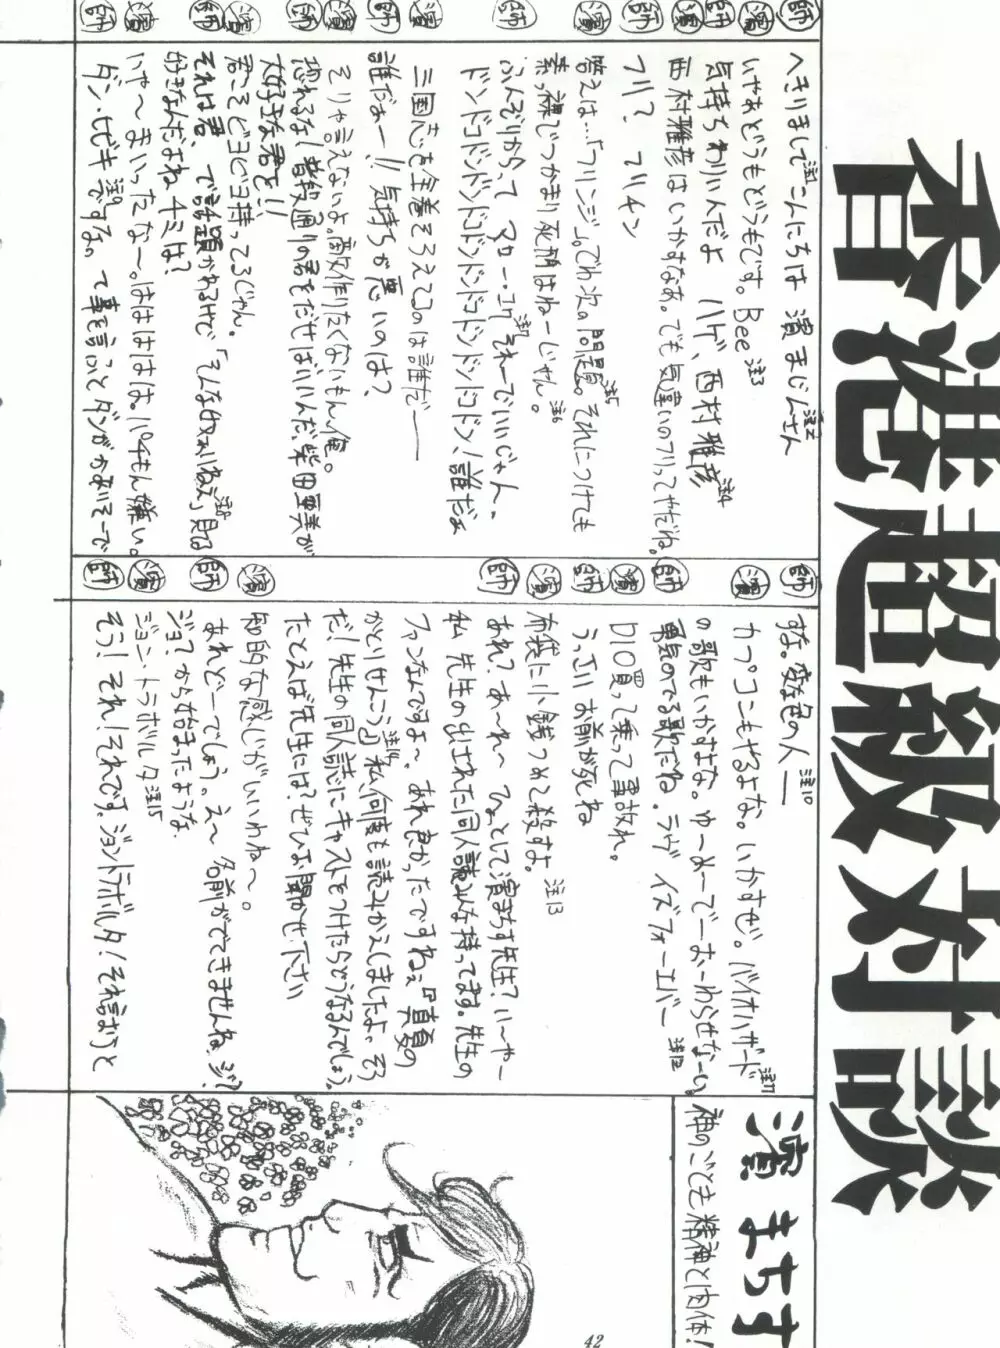 香港超級対談
師 へきりまして注1こんにちは 濱まじんさん注2
濱 いやあどうもどうもです。Bee注3
師 気持ちわりいんだよ ハゲ、西村雅彦注4
濱 西村雅彦はいかすなあ。でも気違いのフリってやだね。
師 フリ? でリチン
濱 答えは…「フリンジ」。でわ次の問題。注5それにつけても
素っ裸でつかまり死刑はねーじゃん。注6
師 ふんぞりかって マロー・コケ注7それーでいいじゃん-
ドンドコドンドンドコドンドンドコドンドンドコドン!誰だぁ
濱 三国志を全巻そろえてるのは誰だ——
師 誰だぁー!!気持ちが悪いのは?
濱 そりゃ言えないよ。敵作りたくないもん俺。
師 恐れるな!普段通りの君をだせばいいんだ、柴田亜美が
大好きな君を!!
濱 君こそピヨピヨ持ってるじゃん。
師 それは君、で話題かわるけで「そんなやわぃねえ」注8見な
好きなんだよね チミは?
濱 いや〜まいったな〜。はははははは。パチもん嫌い。
師 ダン・ヒビキ注9ですな。って事を言うとダンがかわいそーで
師 すな。変な色の人—注10
濱 カプコンもやるよな。いかすぜ。バイオハザード注11
の歌もいかすよな。ゆーめーでーおーわらせなーい
師 勇気のでる歌だね。ラヴ イズフォーエバー注12
濱 DIO買って乗って事故れ。
師 うっさい お前が死ね
濱 布袋に小銭つめて殺すよ。注13
師 あれ?あ〜れ〜 ひょっとして濱まちす先生?い〜や—
私 先生の出された同人誌みんな持ってます。先生の
ファンなんですよ〜、あれ良かったですねぇ『真夏の
かとりせんこう』注14私、何度も読みかえしましたよ。そう
だ!先生の同人誌にキャストをつけたらどうなるんでしょう。
たとえば先生には?ぜひお聞かせ下さい
濱 知的な感じがいいわね〜。
師 あれどーでしょう。え〜 名前がでてきませんね、ジ?
ジョ?から始まったような
濱 ジョン・トラボルタ注15
師 そう!それ!それです。ジョントラボルタ!それ言おうと
濱まちす
神のごとき精神と肉体!
42